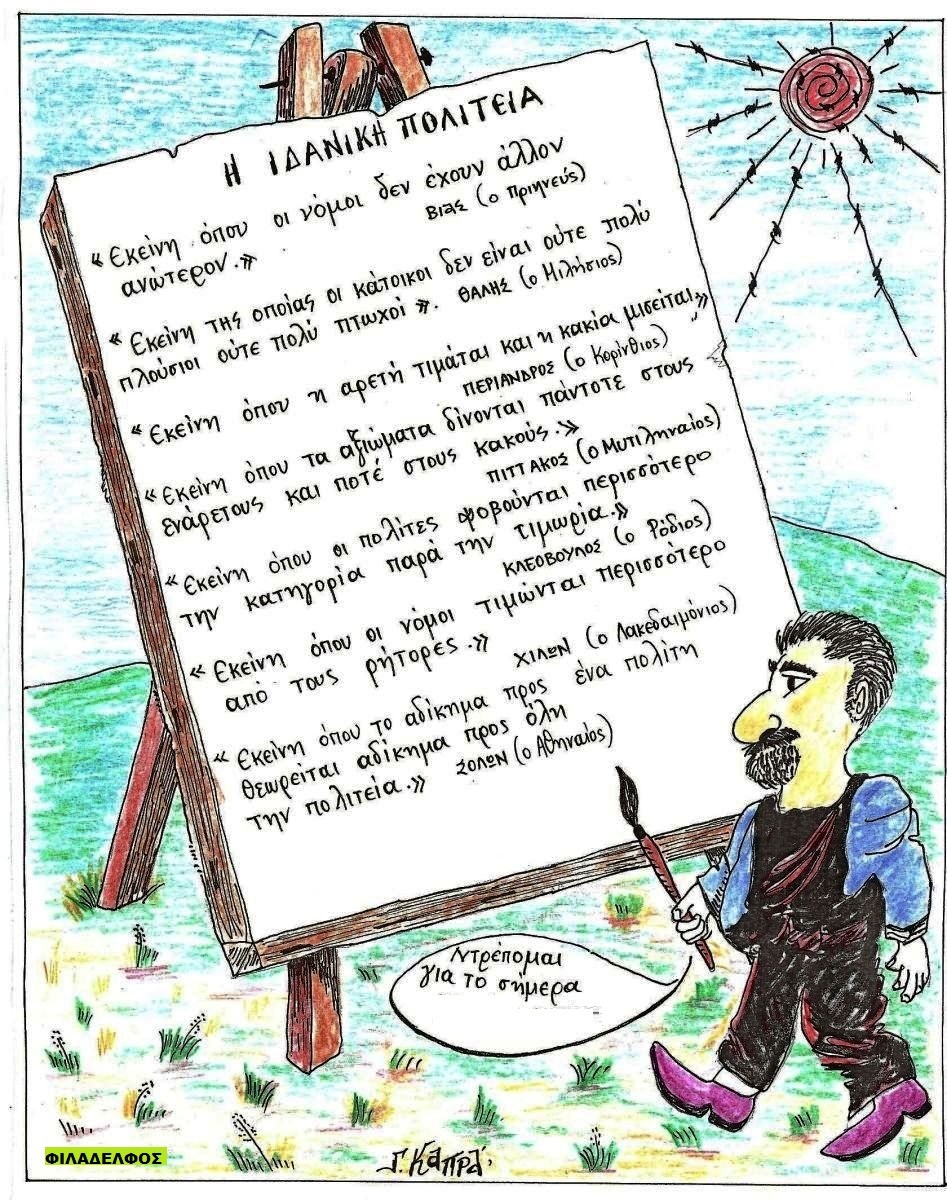 Η ΙΔΑΝΙΚΗ ΠΟΛΙΤΕΙΑ
«Εκείνη όπου οι νόμοι δεν έχουν άλλον
ανώτερον.» ΒΙΑΣ (ο Πριηνεύς)
«Εκείνη της οποίας οι κάτοικοι δεν είναι ούτε πολύ
πλούσιοι ούτε πολύ πτωχοί». ΘΑΛΗΣ (ο Μιλήσιος)
«Εκείνη όπου η αρετή τιμάται και η κακία μισείται,»
ΠΕΡΙΑΝΔΡΟΣ (ο Κορίνθιος)
«Εκείνη όπου τα αξιώματα δίνονται πάντοτε στους
ενάρετους και ποτέ στους κακούς.»
ΠΙΤΤΑΚΟΣ (ο Μυτιληναίος)
«Εκείνη όπου οι πολίτες φοβούνται περισσότερο
την κατηγορία παρά την τιμωρία.»
ΚΛΕΟΒΟΥΛΟΣ (ο Ρόδιος)
«Εκείνη όπου οι νόμοι τιμώνται περισσότερο
από τους ρήτορες.» ΧΙΛΩΝ (ο Λακεδαιμόνιος)
«Εκείνη όπου το αδίκημα προς ένα πολίτη
θεωρείται αδίκημα προς όλη
την πολιτεία.» ΣΟΛΩΝ (ο Αθηναίος)
Ντρέπομαι
για το σήμερα
ΦΙΛΑΔΕΛΦΟΣ
Γ. ΚΑΠΡΑ